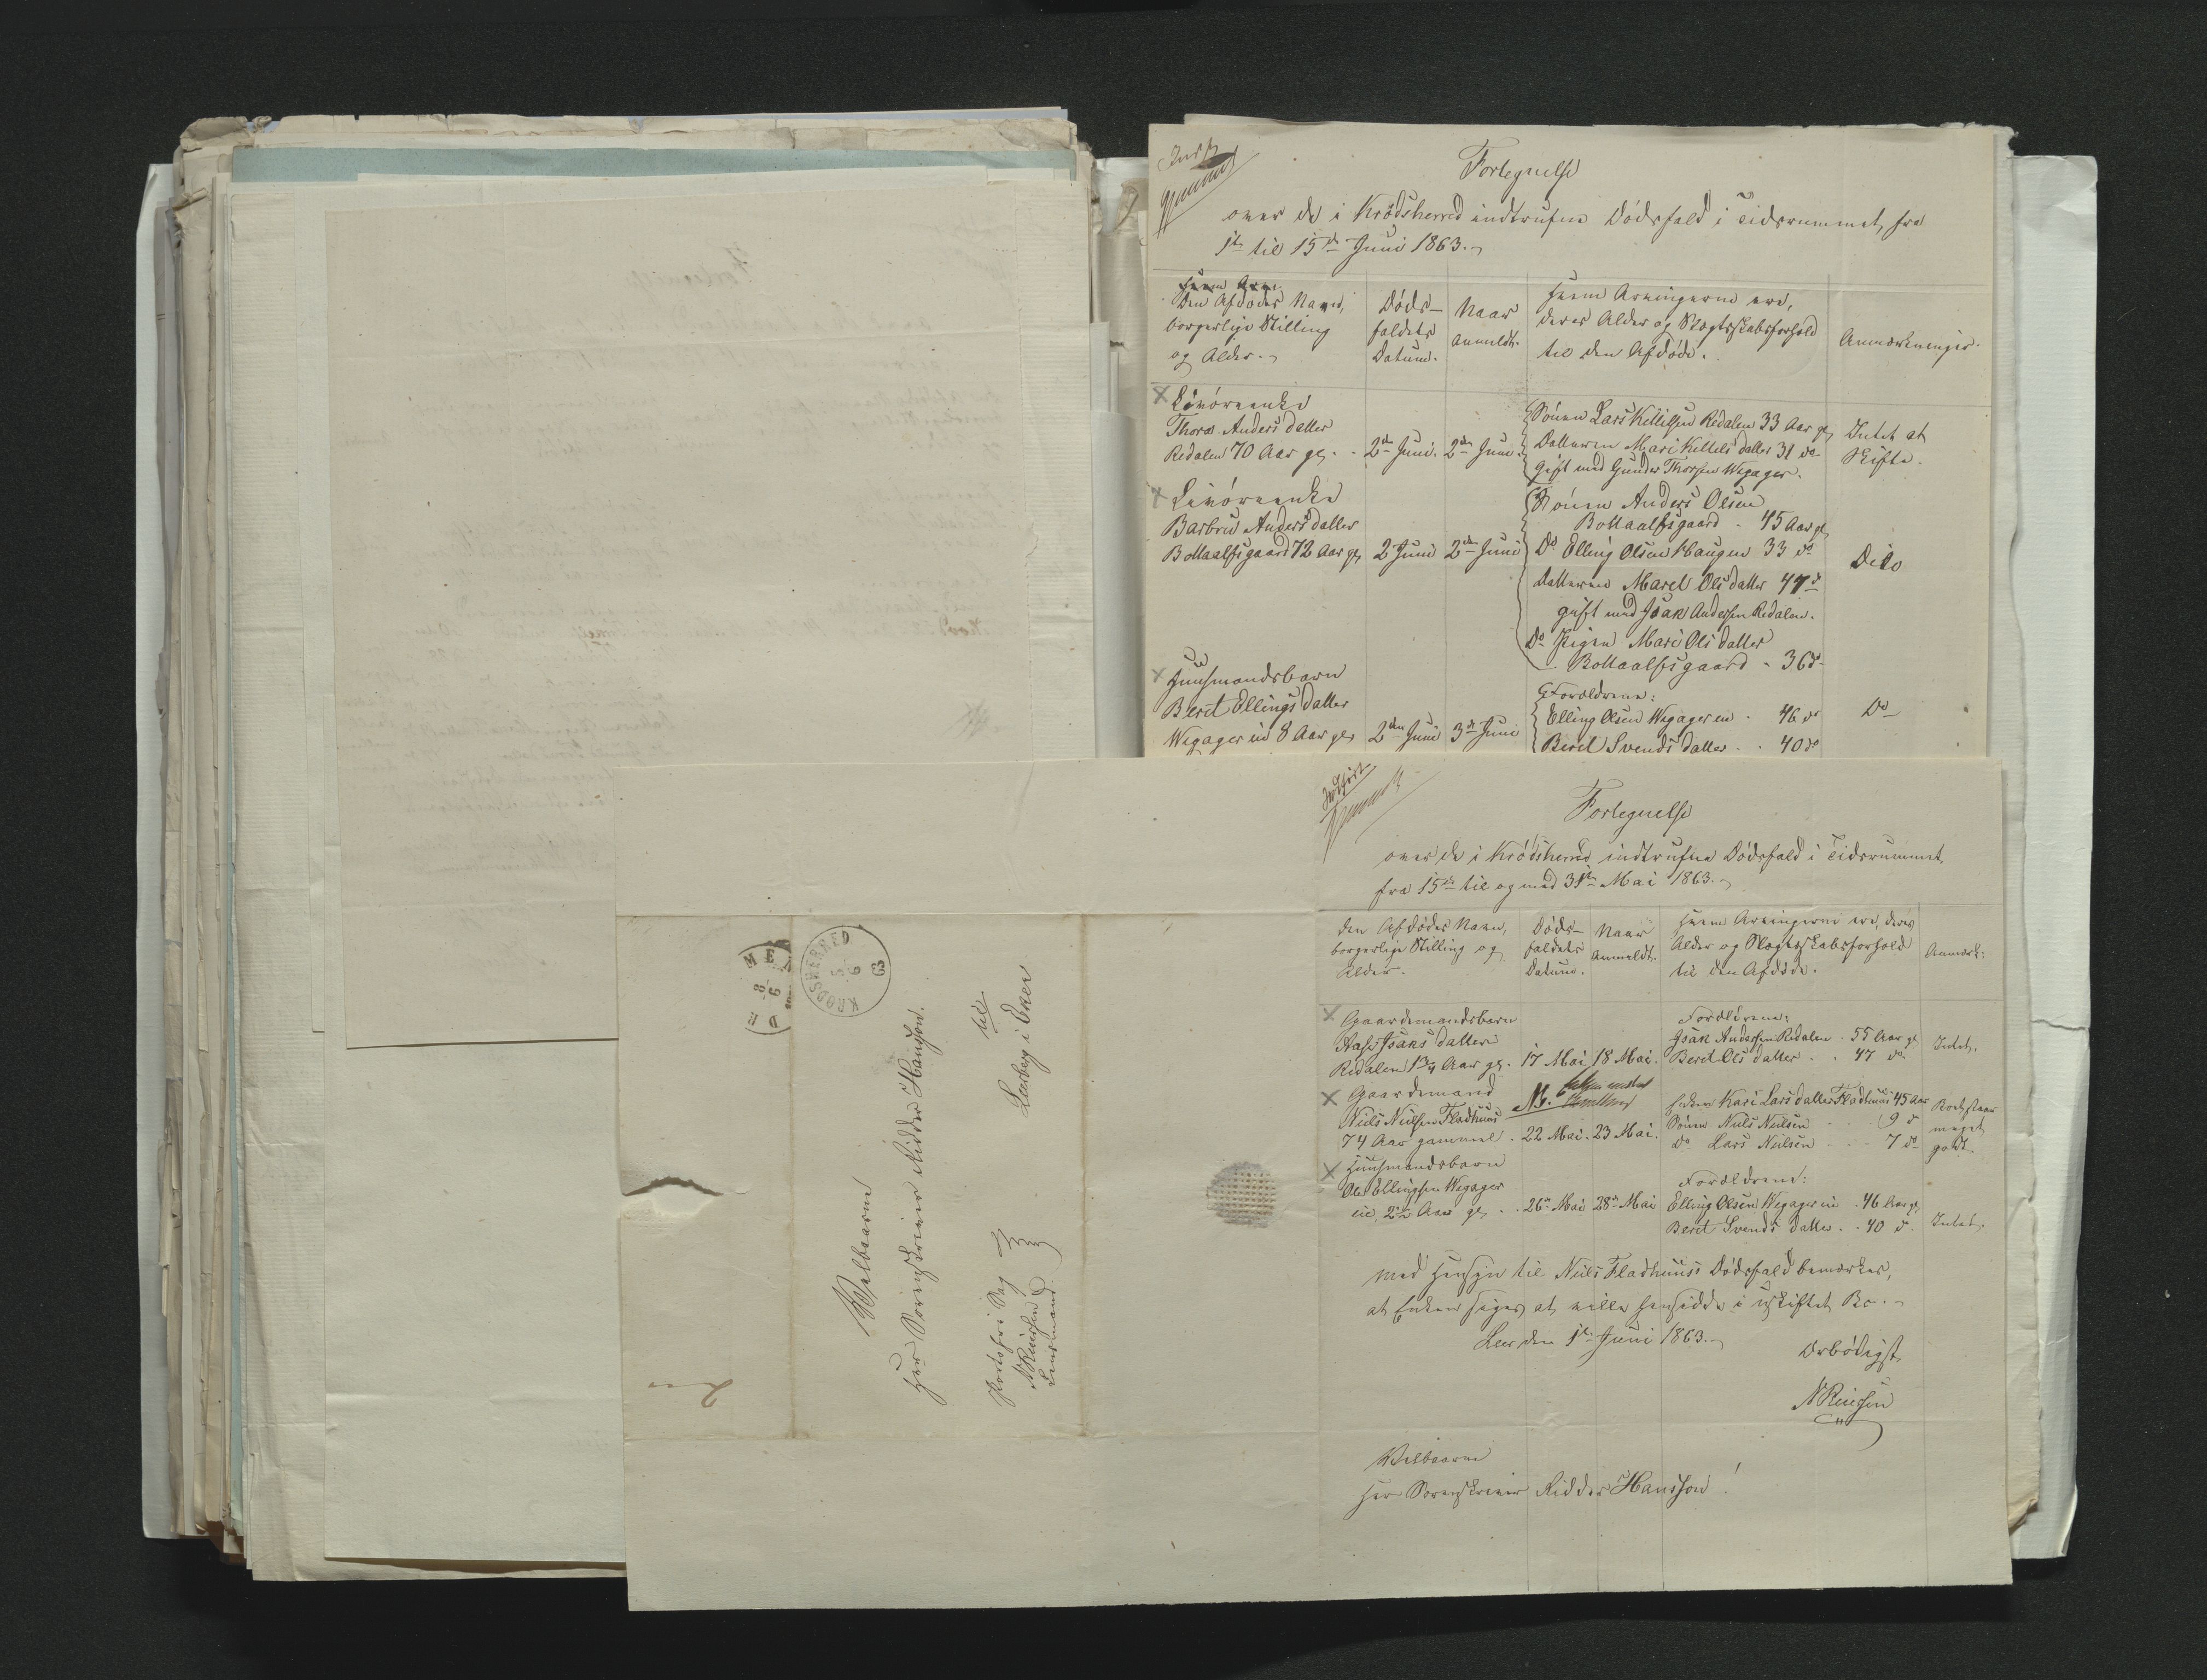 Indf
Fortegnelse
over de i Krødsherred indtrufne Dødsfald i Tidsrummet fra
1te til 15de Juni 1863.
Hvem Arvin
Den Afdødes Navn,
borgerlige Stilling
og Alder.
Døds-
faldets
Datum.
Naar
anmeldt.
Hvem Arvingerne ere,
deres Alder og Slægtskabsforhold
til den Afdøde.
Anmærkninger.
Livørenke
Thora Andersdatter
Redalen 70 Aar gl. 2den Juni. 2den Juni.
Sønen Lars Kittilsen Redalen 33 Aar gl
Datteren Mari Kittelsdatter 31 do
gift med Gunder Thorsen Wegager.
Intet at
skifte.
Livørenke
Barbro Andersdatter
Bottaalfsgaard 72 Aar gl. 2 Juni 2den Juni
Sønen Anders Olsen
Bottaalfsgaard - 45 Aar gl
Do Elling Olsen Haugen 33 do
Datteren Marel Olsdatter 47 do
gift med Isak Andersen Redalen.
Do Pigen Mari Olsdatter
Bottaalfsgaard - 36 do
Dito
Huusmandsbarn
Berit Ellingsdatter
Wegager eie 8 Aar gl. 2den Juni 3de Juni
Forældrene:
Elling Olsen Wegager eie - 46 do
Berit Svendsdatter - - 40 do
Do
Indført
Fortegnelse
over de i Krødsherred indtrufne Dødsfald i Tidsrummet
fra 15de til og med 31te Mai 1863.
Den Afdødes Navn,
borgerlige Stilling og
Alder.
Døds-
faldets
Datum.
Naar
anmeldt.
Hvem Arvingerne ere, deres
Alder og Slægtskabsforhold
til den Afdøde.
Anmærk:
Gaardmandsbarn
Isaksdatter
Redalen 1 3/4 Aar gl. 17 Mai 18 Mai.
Forældrene:
Isak Andersen Redalen - 55 Aar gl
Berit Olsdatter - - 47 do
Intet.
Gaardmand
Niels Nielsen Fladhuus
74 Aar gammel - 22 Mai. 23 Mai.
NB.
Enken Kari Larsdatter Fladhuus 45 Aar
Sønen Niels Nielsen - - 9 do
Do Lars Nielsen - - 7 do
Boet staar
meget
godt.
Huusmandsbarn
Ole Ellingsen Wegager
eie, 2 1/2 Aar gl. - 26de Mai 28de Mai
Forældrene:
Elling Olsen Wegager eie - 46 Aar gl
Berit Svendsdatter - - 40 do
Intet.
Med Hensyn til Niels Fladhuus's Dødsfald bemærkes,
at Enken siges at ville hensidde i uskiftet Bo.
Leer den 1te Juni 1863.
Ærbødigst
N Reiersen
Velbaarne
Herr Sorenskriver Ridder Hansson!
KRØDSHERRED
5 6 63
Velbaarne
Herr Sorenskriver Ridder Hansson.
til
Loeberg i Eker
Portofri Sag
N Reiersen
Lensmand.